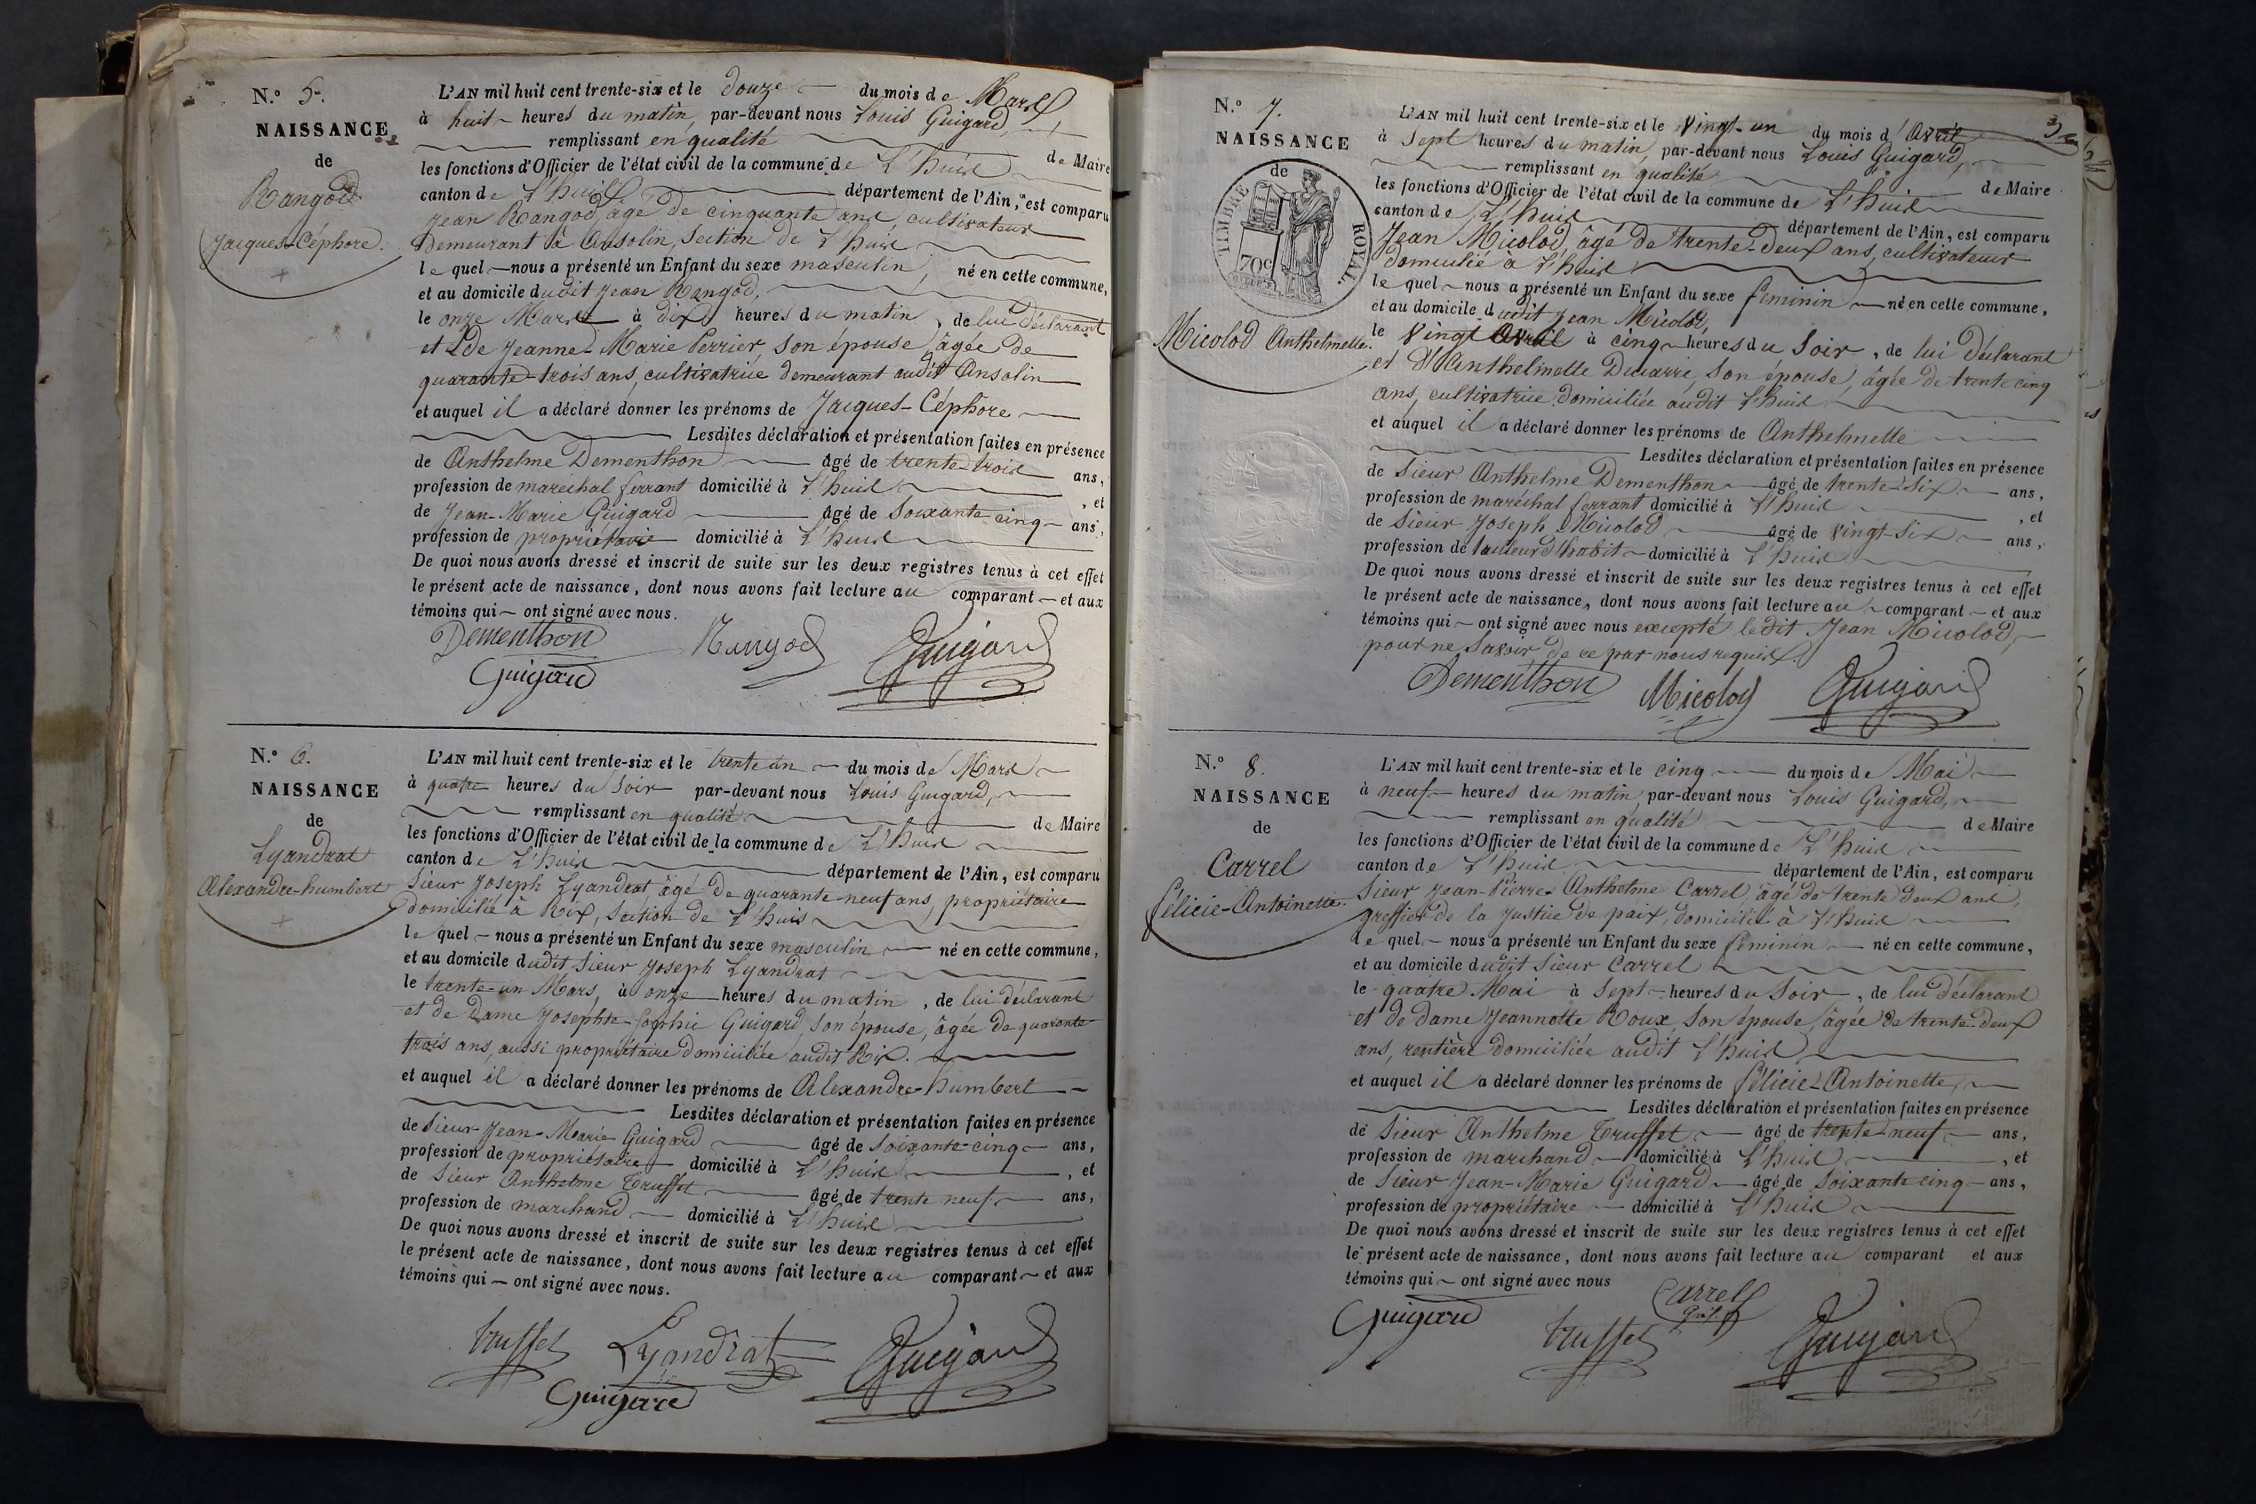 N.° 5.
NAISSANCE
de
Rangod
Jacques-Céphore.
L'AN mil huit cent trente-six et le douze du mois de Mars
à huit heures du matin, par-devant nous Louis Guigard,
remplissant en qualité de Maire
les fonctions d'Officier de l'état civil de la commune de L'huis
canton de L'huis département de l'Ain, est comparu
Jean Rangod, âgé de cinquante ans cultivateur
Demeurant à Ansolin, Section de L'huis
le quel nous a présenté un Enfant du sexe masculin, né en cette commune,
et au domicile dudit Jean Rangod,
le onze Mars à dix heures du matin, de lui déclarant
et de Jeanne-Marie Perrier, son épouse, âgée de
quarante-trois ans, cultivatrice demeurant audit Ansolin
et auquel il a déclaré donner les prénoms de Jacques-Céphore
Lesdites déclaration et présentation faites en présence
de Anthelme Dementhon âgé de trente-trois ans,
profession de marechal ferrant domicilié à L'huis, et
de Jean-Marie Guigard âgé de soixante cinq ans,
profession de propriétaire domicilié à L'huis
De quoi nous avons dressé et inscrit de suite sur les deux registres tenus à cet effet
le présent acte de naissance, dont nous avons fait lecture au comparant et aux
témoins qui ont signé avec nous.
Dementhon Rangod Guigard
Guigard
N.° 6.
NAISSANCE
de
Lyandrat
Alexandre-humbert
L'AN mil huit cent trente-six et le trente un du mois de Mars
à quatre heures du Soir par-devant nous Louis Guigard,
remplissant en qualité de Maire
les fonctions d'Officier de l'état civil de la commune de L'huis
canton de L'huis département de l'Ain, est comparu
Sieur Joseph Lyandrat, âgé de quarante-neuf ans, propriétaire
domicilié à Rix, Section de L'huis
le quel nous a présenté un Enfant du sexe masculin né en cette commune,
et au domicile dudit Sieur Joseph Lyandrat
le trente-un Mars, à onze heures du matin, de lui déclarant
et de Dame Josephte-Sophie Guigard, son épouse, âgée de quarante
trois ans, aussi propriétaire domiciliée audit Rix.
et auquel il a déclaré donner les prénoms de Alexandre-humbert
Lesdites déclaration et présentation faites en présence
de Sieur Jean-Marie Guigard âgé de soixante-cinq ans,
profession de propriétaire domicilié à L'huis, et
de Sieur Anthelme Truffet âgé de trente neuf ans,
profession de marchand domicilié à L'huis
De quoi nous avons dressé et inscrit de suite sur les deux registres tenus à cet effet
le présent acte de naissance, dont nous avons fait lecture au comparant et aux
témoins qui ont signé avec nous.
truffet Lyandrat Guigard
Guigard
N.° 7.
NAISSANCE
de
TIMBRE ROYAL
70c
Micolod Anthelmette.
3
L'AN mil huit cent trente-six et le Vingt-un du mois d'Avril
à Sept heures du matin, par-devant nous Louis Guigard,
remplissant en qualité de Maire
les fonctions d'Officier de l'état civil de la commune de L'huis
canton de L'huis département de l'Ain, est comparu
Jean Micolod, âgé de trente-deux ans, cultivateur
domicilié à L'huis
le quel nous a présenté un Enfant du sexe féminin né en cette commune,
et au domicile dudit Jean Micolod,
le Vingt Avril à cinq heures du Soir, de lui déclarant
et d'Anthelmette Ducarre, son épouse, âgée de trente cinq
ans, cultivatrice domiciliée audit L'huis
et auquel il a déclaré donner les prénoms de Anthelmette
Lesdites déclaration et présentation faites en présence
de Sieur Anthelme Dementhon âgé de trente-six ans,
profession de maréchal ferrant domicilié à L'huis, et
de Sieur Joseph Micolod âgé de Vingt-Six ans,
profession de tailleur d'habit domicilié à L'huis
De quoi nous avons dressé et inscrit de suite sur les deux registres tenus à cet effet
le présent acte de naissance, dont nous avons fait lecture au comparant et aux
témoins qui ont signé avec nous excepté ledit Jean Micolod,
pour ne Savoir de ce par nous requis.
Dementhon Micolod Guigard
N.° 8.
NAISSANCE
de
Carrel
félicie-Antoinette.
L'AN mil huit cent trente-six et le cinq du mois de Mai
à neuf heures du matin, par-devant nous Louis Guigard,
remplissant en qualité de Maire
les fonctions d'Officier de l'état civil de la commune de L'huis
canton de L'huis département de l'Ain, est comparu
Sieur Jean-Pierre-Anthelme Carrel, âgé de trente deux ans,
greffier de la justice de paix, domicilié à L'huis
le quel nous a présenté un Enfant du sexe féminin né en cette commune,
et au domicile dudit Sieur Carrel
le quatre Mai à Sept heures du Soir, de lui déclarant
et de dame Jeannotte Roux, son épouse, âgée de trente-deux
ans, rentière domiciliée audit L'huis
et auquel il a déclaré donner les prénoms de félicie-Antoinette,
Lesdites déclaration et présentation faites en présence
de Sieur Anthelme Truffet âgé de trente-neuf ans,
profession de marchand domicilié à L'huis, et
de Sieur Jean-Marie Guigard âgé de soixante cinq ans,
profession de propriétaire domicilié à L'huis
De quoi nous avons dressé et inscrit de suite sur les deux registres tenus à cet effet
le présent acte de naissance, dont nous avons fait lecture au comparant et aux
témoins qui ont signé avec nous
Guigard truffet Carrel Guigard